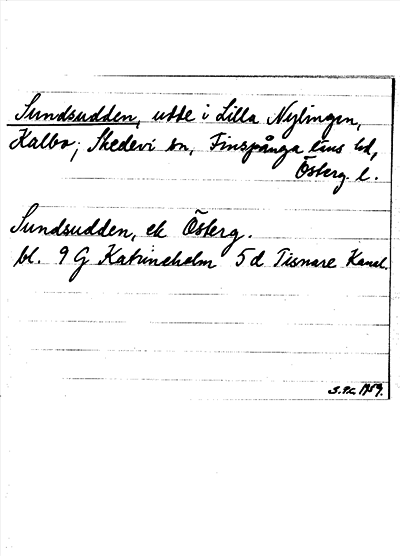 Sundsudden, udde i Lilla Nylingen,
Kalbo; Skedevi sn, Finspånga läns hd,
Österg. l.
Sundsudden, ek Österg.
bl. 9 G Katrineholm 5d Tisnare Kanal.
1959.